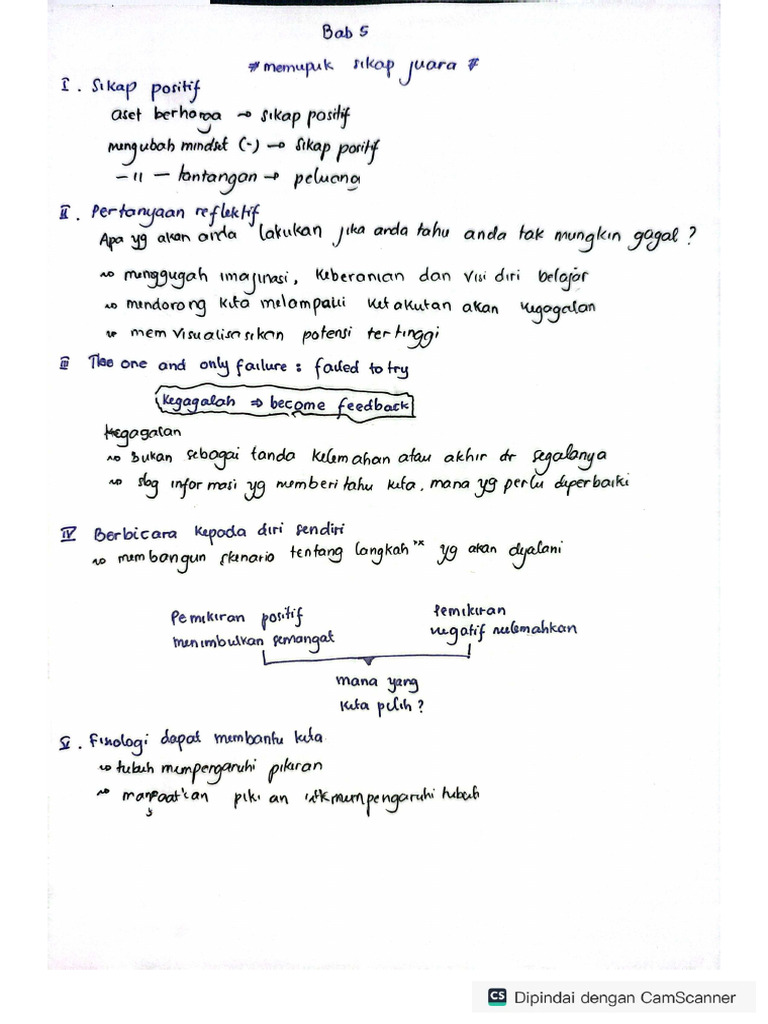 Bab 5
# memupuk sikap juara #
I. Sikap positif
aset berharga → sikap positif
mengubah mindset (-) → sikap positif
-11- tantangan → peluang
II. Pertanyaan reflektif
Apa yg akan anda lakukan jika anda tahu anda tak mungkin gagal?
~ menggugah imajinasi, keberanian dan visi diri belajar
~ mendorong kita melampaui ketakutan akan kegagalan
~ memvisualisasikan potensi tertinggi
III The one and only failure : failed to try
Kegagalan ⇒ become feedback
Kegagalan
~ Bukan sebagai tanda kelemahan atau akhir dr segalanya
~ sbg informasi yg memberi tahu kita, mana yg perlu diperbaiki
IV Berbicara kepada diri sendiri
~ membangun skenario tentang langkah"x yg akan dijalani
Pemikiran positif
menimbulkan semangat
Pemikiran
negatif melemahkan
mana yang
kita pilih?
V. Fisologi dapat membantu kita
~ tubuh mempengaruhi pikiran
~ manfaatkan piki an utk mempengaruhi tubuh
CS Dipindai dengan CamScanner